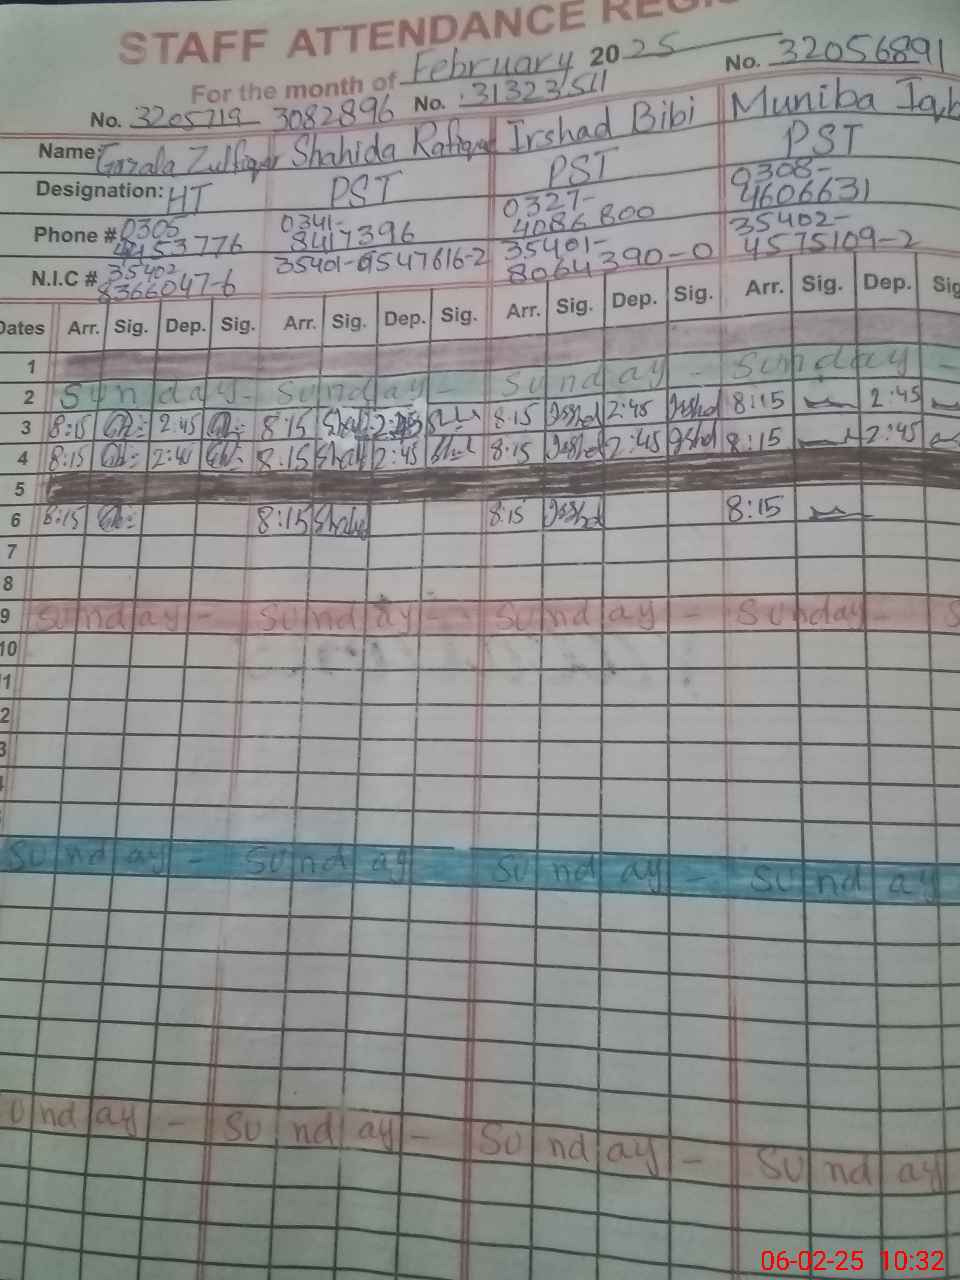 STAFF ATTENDANCE REGIS
For the month of February 2025
No. 3205719 3082896 No. 31323511 No. 32056891
Name: Gazala Zulfiqar Shahida Rafique Irshad Bibi Muniba Iqb
Designation: HT PST PST PST
Phone # 0305 0341- 0327- 0308-
4453776 8417396 4086800 4606631
N.I.C # 35402 35401-9547616-2 35401- 35402-
8366047-6 8064390-0 4575109-2
Dates Arr. Sig. Dep. Sig. Arr. Sig. Dep. Sig. Arr. Sig. Dep. Sig. Arr. Sig. Dep. Sig
1
2 Sunday - Sunday - Sunday - Sunday -
3 8:15 2:45 8:15 Shah 2:45 8:15 Irshad 2:45 Irshad 8:15 2:45
4 8:15 2:45 8:15 Shah 2:45 8:15 Irshad 2:45 Irshad 8:15 2:45
5
6 8:15 8:15 8:15 Irshad 8:15
7
8
9 Sunday - Sunday - Sunday - Sunday - S
10
11
2
3
Sunday - Sunday Sunday - Sunday
unday - Sunday - Sunday - Sunday
06-02-25 10:32